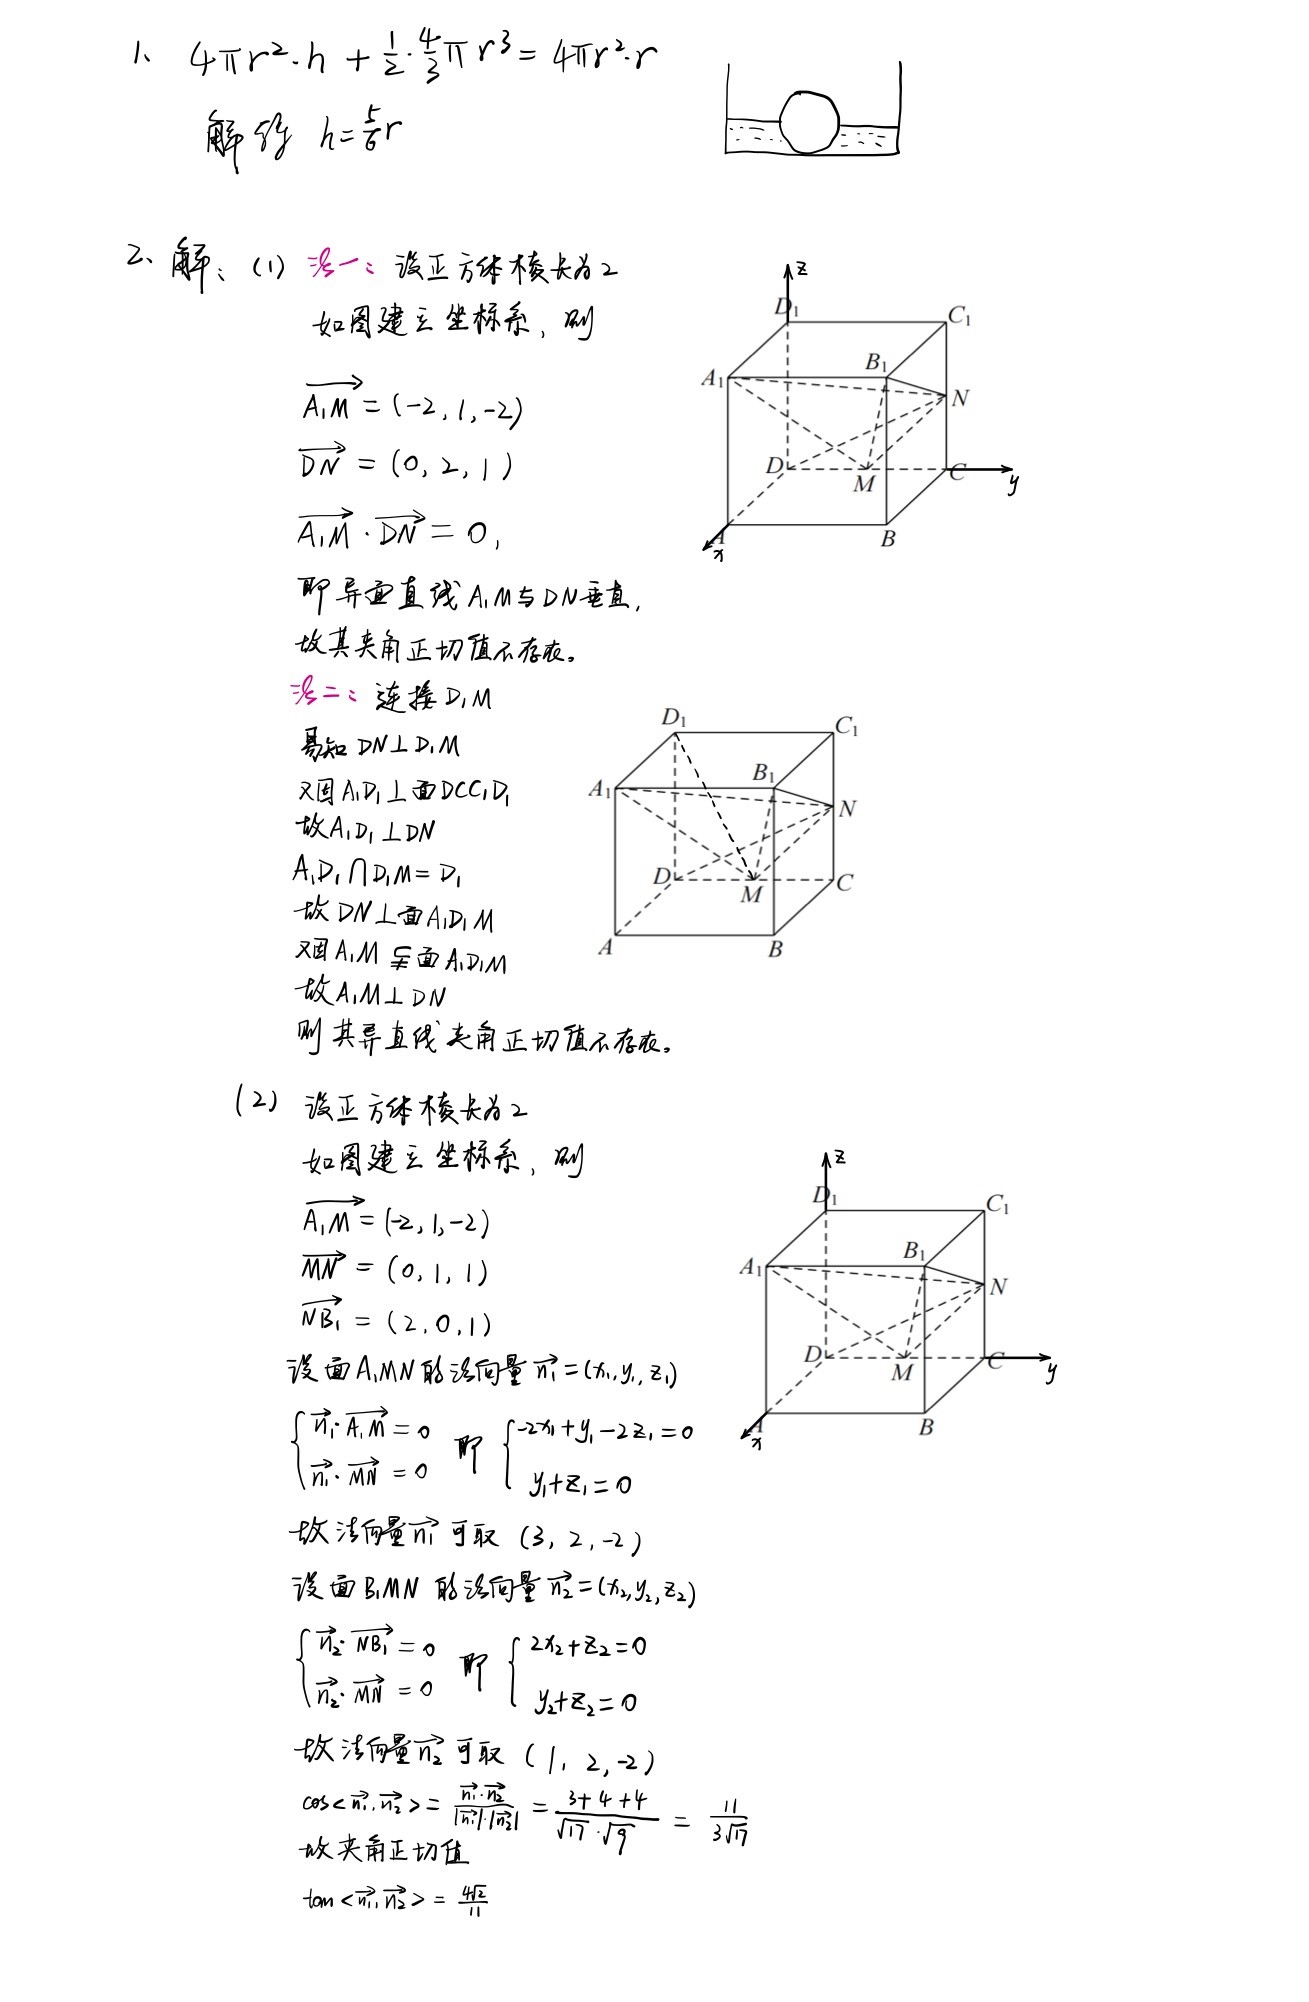 1、 4πr²·h + 1/2·4/3πr³ = 4πr²·r
解得 h=5/6r
2、解：(1) 法一：设正方体棱长为2
如图建立坐标系，则
A₁M→ = (-2, 1, -2)
DN→ = (0, 2, 1)
A₁M→ · DN→ = 0,
即异面直线A₁M与DN垂直,
故其夹角正切值不存在。
z
D₁ C₁
A₁ B₁
N
D M C y
A B
x
法二：连接D₁M
易知DN⊥D₁M
又因A₁D₁⊥面DCC₁D₁
故A₁D₁⊥DN
A₁D₁∩D₁M=D₁
故DN⊥面A₁D₁M
又因A₁M⫋面A₁D₁M
故A₁M⊥DN
则其异直线夹角正切值不存在。
D₁ C₁
A₁ B₁
N
D M C
A B
(2) 设正方体棱长为2
如图建立坐标系，则
A₁M→ = (-2, 1, -2)
MN→ = (0, 1, 1)
NB₁→ = (2, 0, 1)
设面A₁MN的法向量n₁→=(x₁, y₁, z₁)
{ n₁→·A₁M→ = 0 即 { -2x₁+y₁-2z₁=0
n₁→·MN→ = 0 y₁+z₁=0
故法向量n₁→可取 (3, 2, -2)
设面B₁MN的法向量n₂→=(x₂, y₂, z₂)
{ n₂→·NB₁→ = 0 即 { 2x₂+z₂=0
n₂→·MN→ = 0 y₂+z₂=0
故法向量n₂→可取 (1, 2, -2)
cos<n₁→, n₂→> = n₁→·n₂→/|n₁→|·|n₂→| = 3+4+4/√17·√9 = 11/3√17
故夹角正切值
tan<n₁→, n₂→> = 4√2/11
z
D₁ C₁
A₁ B₁
N
D M C y
A B
x